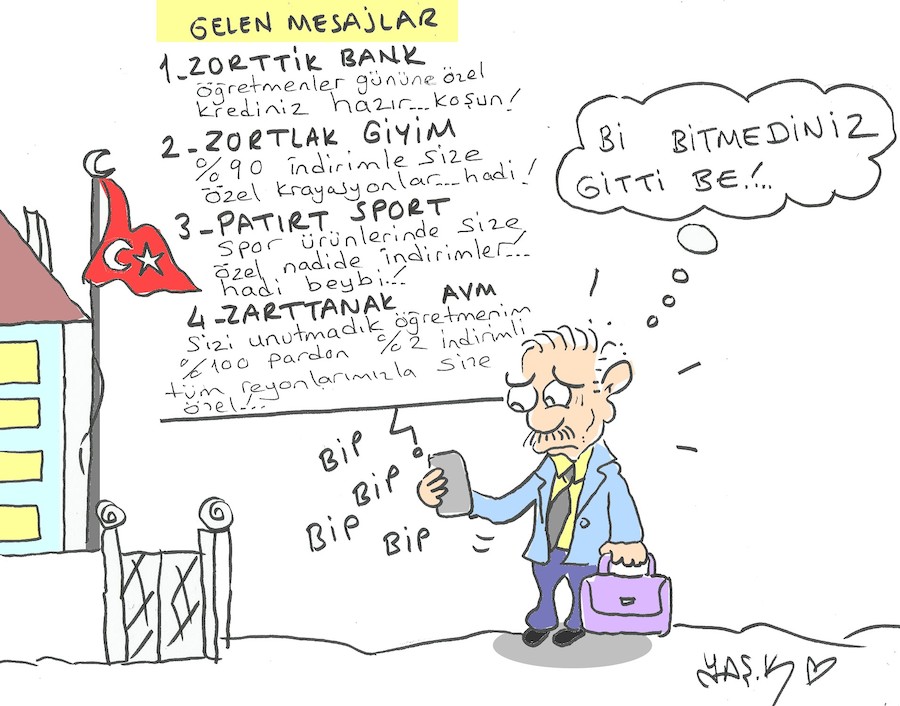 GELEN MESAJLAR
1-ZORTTİK BANK
öğretmenler gününe özel
krediniz hazır...koşun!
2-ZORTLAK GİYİM
%90 indirimle size
özel krayasyonlar...hadi!
3-PATIRT SPORT
spor ürünlerinde size
özel nadide indirimler!...
hadi beybi..!
4-ZARTTANAK AVM
sizi unutmadık öğretmenim
%100 pardon %2 indirimli
tüm reyonlarımızla size
özel!...
Bİ BİTMEDİNİZ
GİTTİ BE.!..
BİP
BİP
BİP
BİP
YAŞ.K